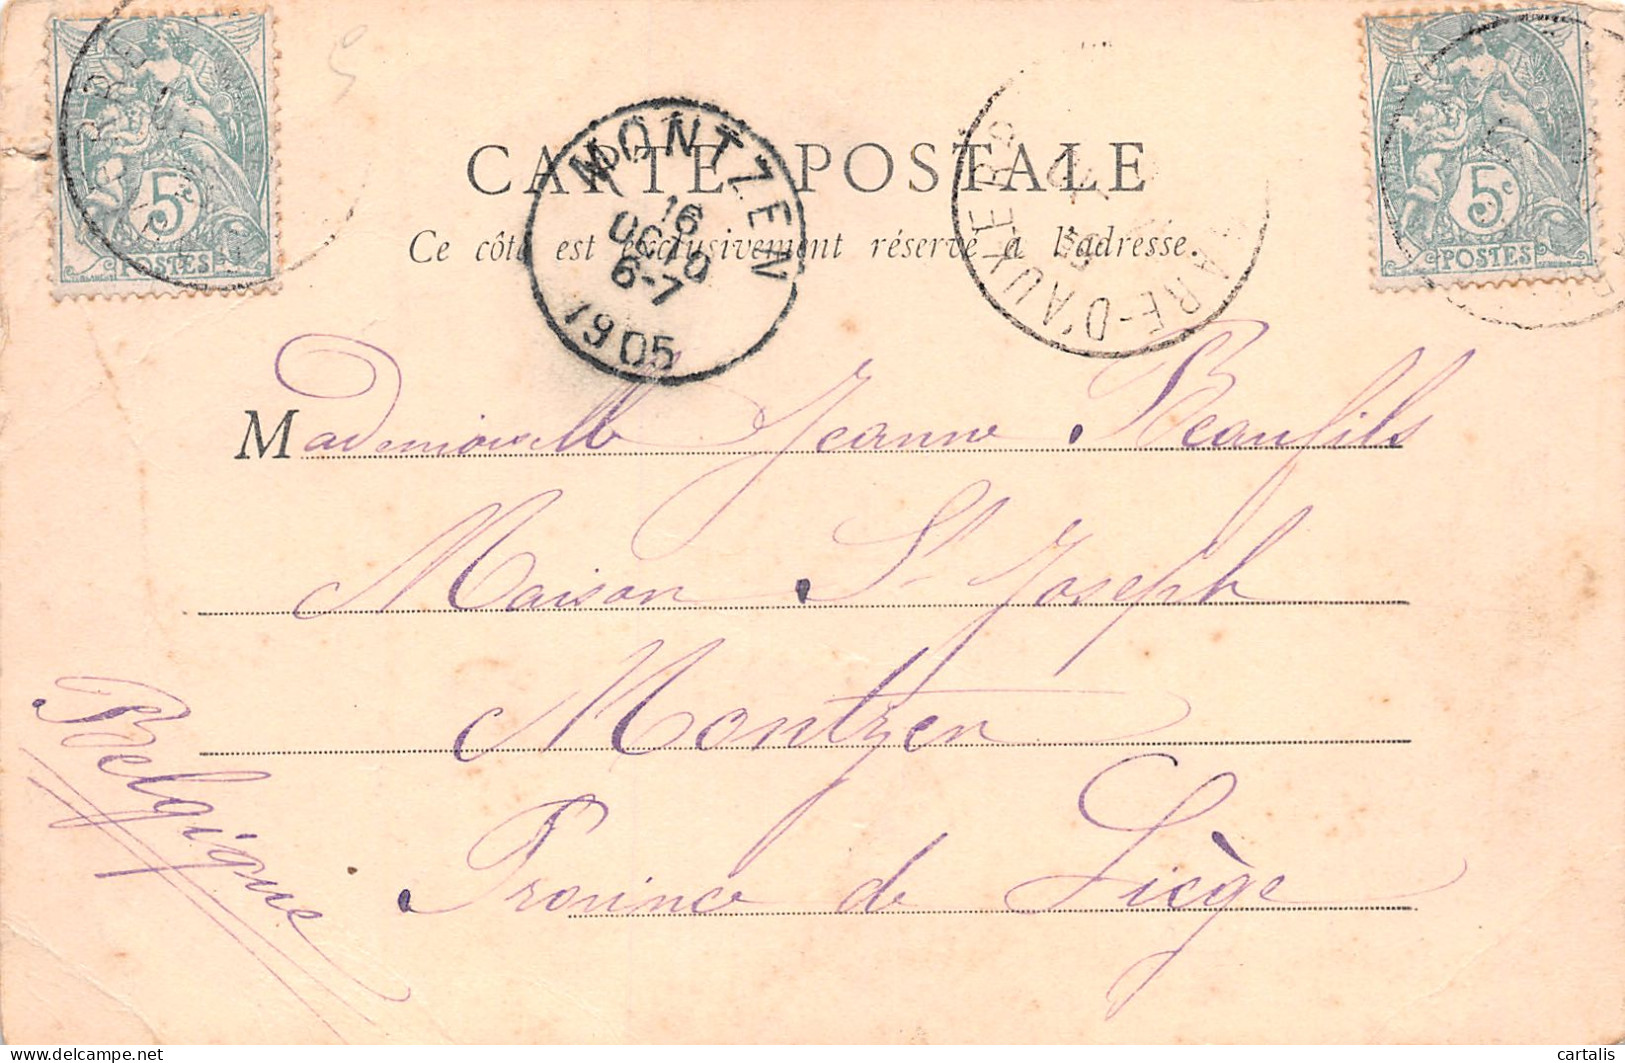 CARTE POSTALE
Ce côté est exclusivement réservé à l'adresse.
MONTZEN
16
OCTO
6-7
1905
5c
POSTES
5c
POSTES
Mademoiselle Jeanne Beaufils
Maison St Joseph
Montzen
Province de Liège
Belgique
cartalis